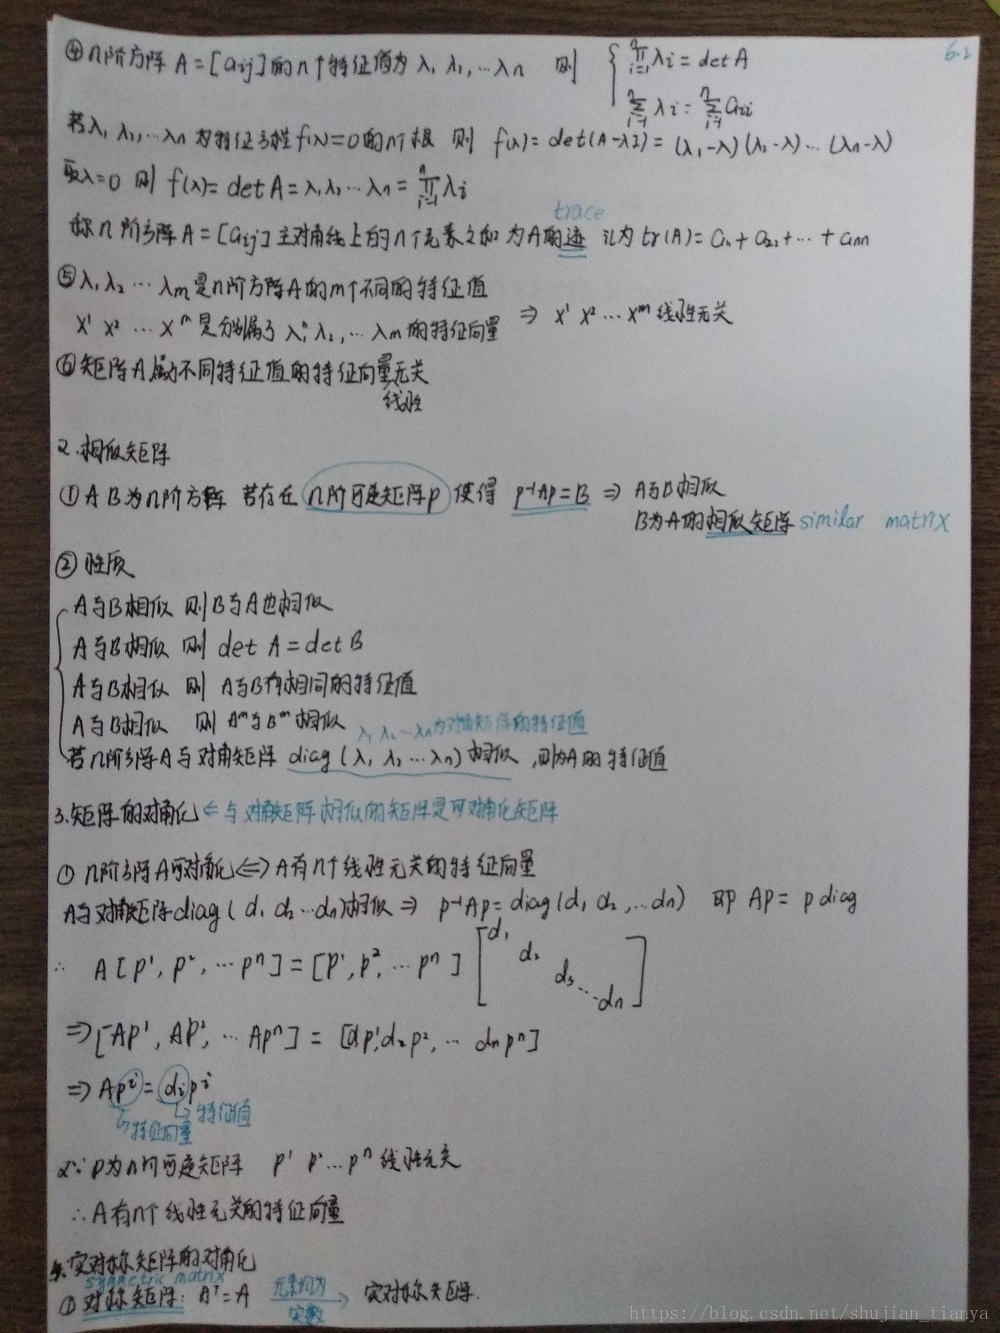 6.2
④ n阶方阵 A=[aij]的n个特征值为 λ₁ λ₂,…λn 则 { ∏ᵢ₌₁ⁿ λi = det A
∑ᵢ₌₁ⁿ λi = ∑ᵢ₌₁ⁿ aii
若λ₁ λ₂,…λn 为特征方程 f(λ)=0的n个根 则 f(λ)= det(A-λI)= (λ₁-λ)(λ₂-λ)…(λn-λ)
取λ=0 则 f(λ)= det A = λ₁λ₂…λn = ∏ᵢ₌₁ⁿ λi
trace
称n阶方阵A=[aij]主对角线上的n个元素之和为A的迹 记为 tr(A)= a₁₁+a₂₂+…+ann
⑤ λ₁ λ₂ … λm 是n阶方阵A的m个不同的特征值
X¹ X² … Xᵐ 是分别属于 λ₁, λ₂, … λm 的特征向量 ⇒ X¹ X² … Xᵐ 线性无关
⑥ 矩阵A属于不同特征值的特征向量线性无关
2. 相似矩阵
① A B为n阶方阵 若存在 n阶可逆矩阵p 使得 p⁻¹Ap=B ⇒ A与B相似
B为A的相似矩阵 similar matrix
② 性质
A与B相似 则B与A也相似
A与B相似 则 det A = det B
A与B相似 则 A与B有相同的特征值
A与B相似 则 Aᵐ与Bᵐ相似
λ₁ λ₂ … λn为对角矩阵的特征值
若n阶方阵A与对角矩阵 diag(λ₁ λ₂ … λn) 相似, 则为A的特征值
3. 矩阵的对角化 ⇐ 与对角矩阵相似的矩阵是可对角化矩阵
① n阶方阵A可对角化 ⇔ A有n个线性无关的特征向量
A与对角矩阵diag(d₁ d₂ … dn)相似 ⇒ p⁻¹Ap = diag(d₁ d₂, … dn) 即 Ap = p diag
∴ A[p¹, p², … pⁿ] = [p¹, p², … pⁿ] [d₁ d₂ d₃ … dn]
⇒ [Ap¹, Ap², … Apⁿ] = [d₁p¹, d₂p², … dnpⁿ]
⇒ Apⁱ = dipⁱ
特征向量 特征值
又∵ p为n阶可逆矩阵 p¹ p² … pⁿ 线性无关
∴ A有n个线性无关的特征向量
4. 实对称矩阵的对角化
symmetric matrix
① 对称矩阵: Aᵀ=A 元素均为实数 → 实对称矩阵.
https://blog.csdn.net/shujian_tianya